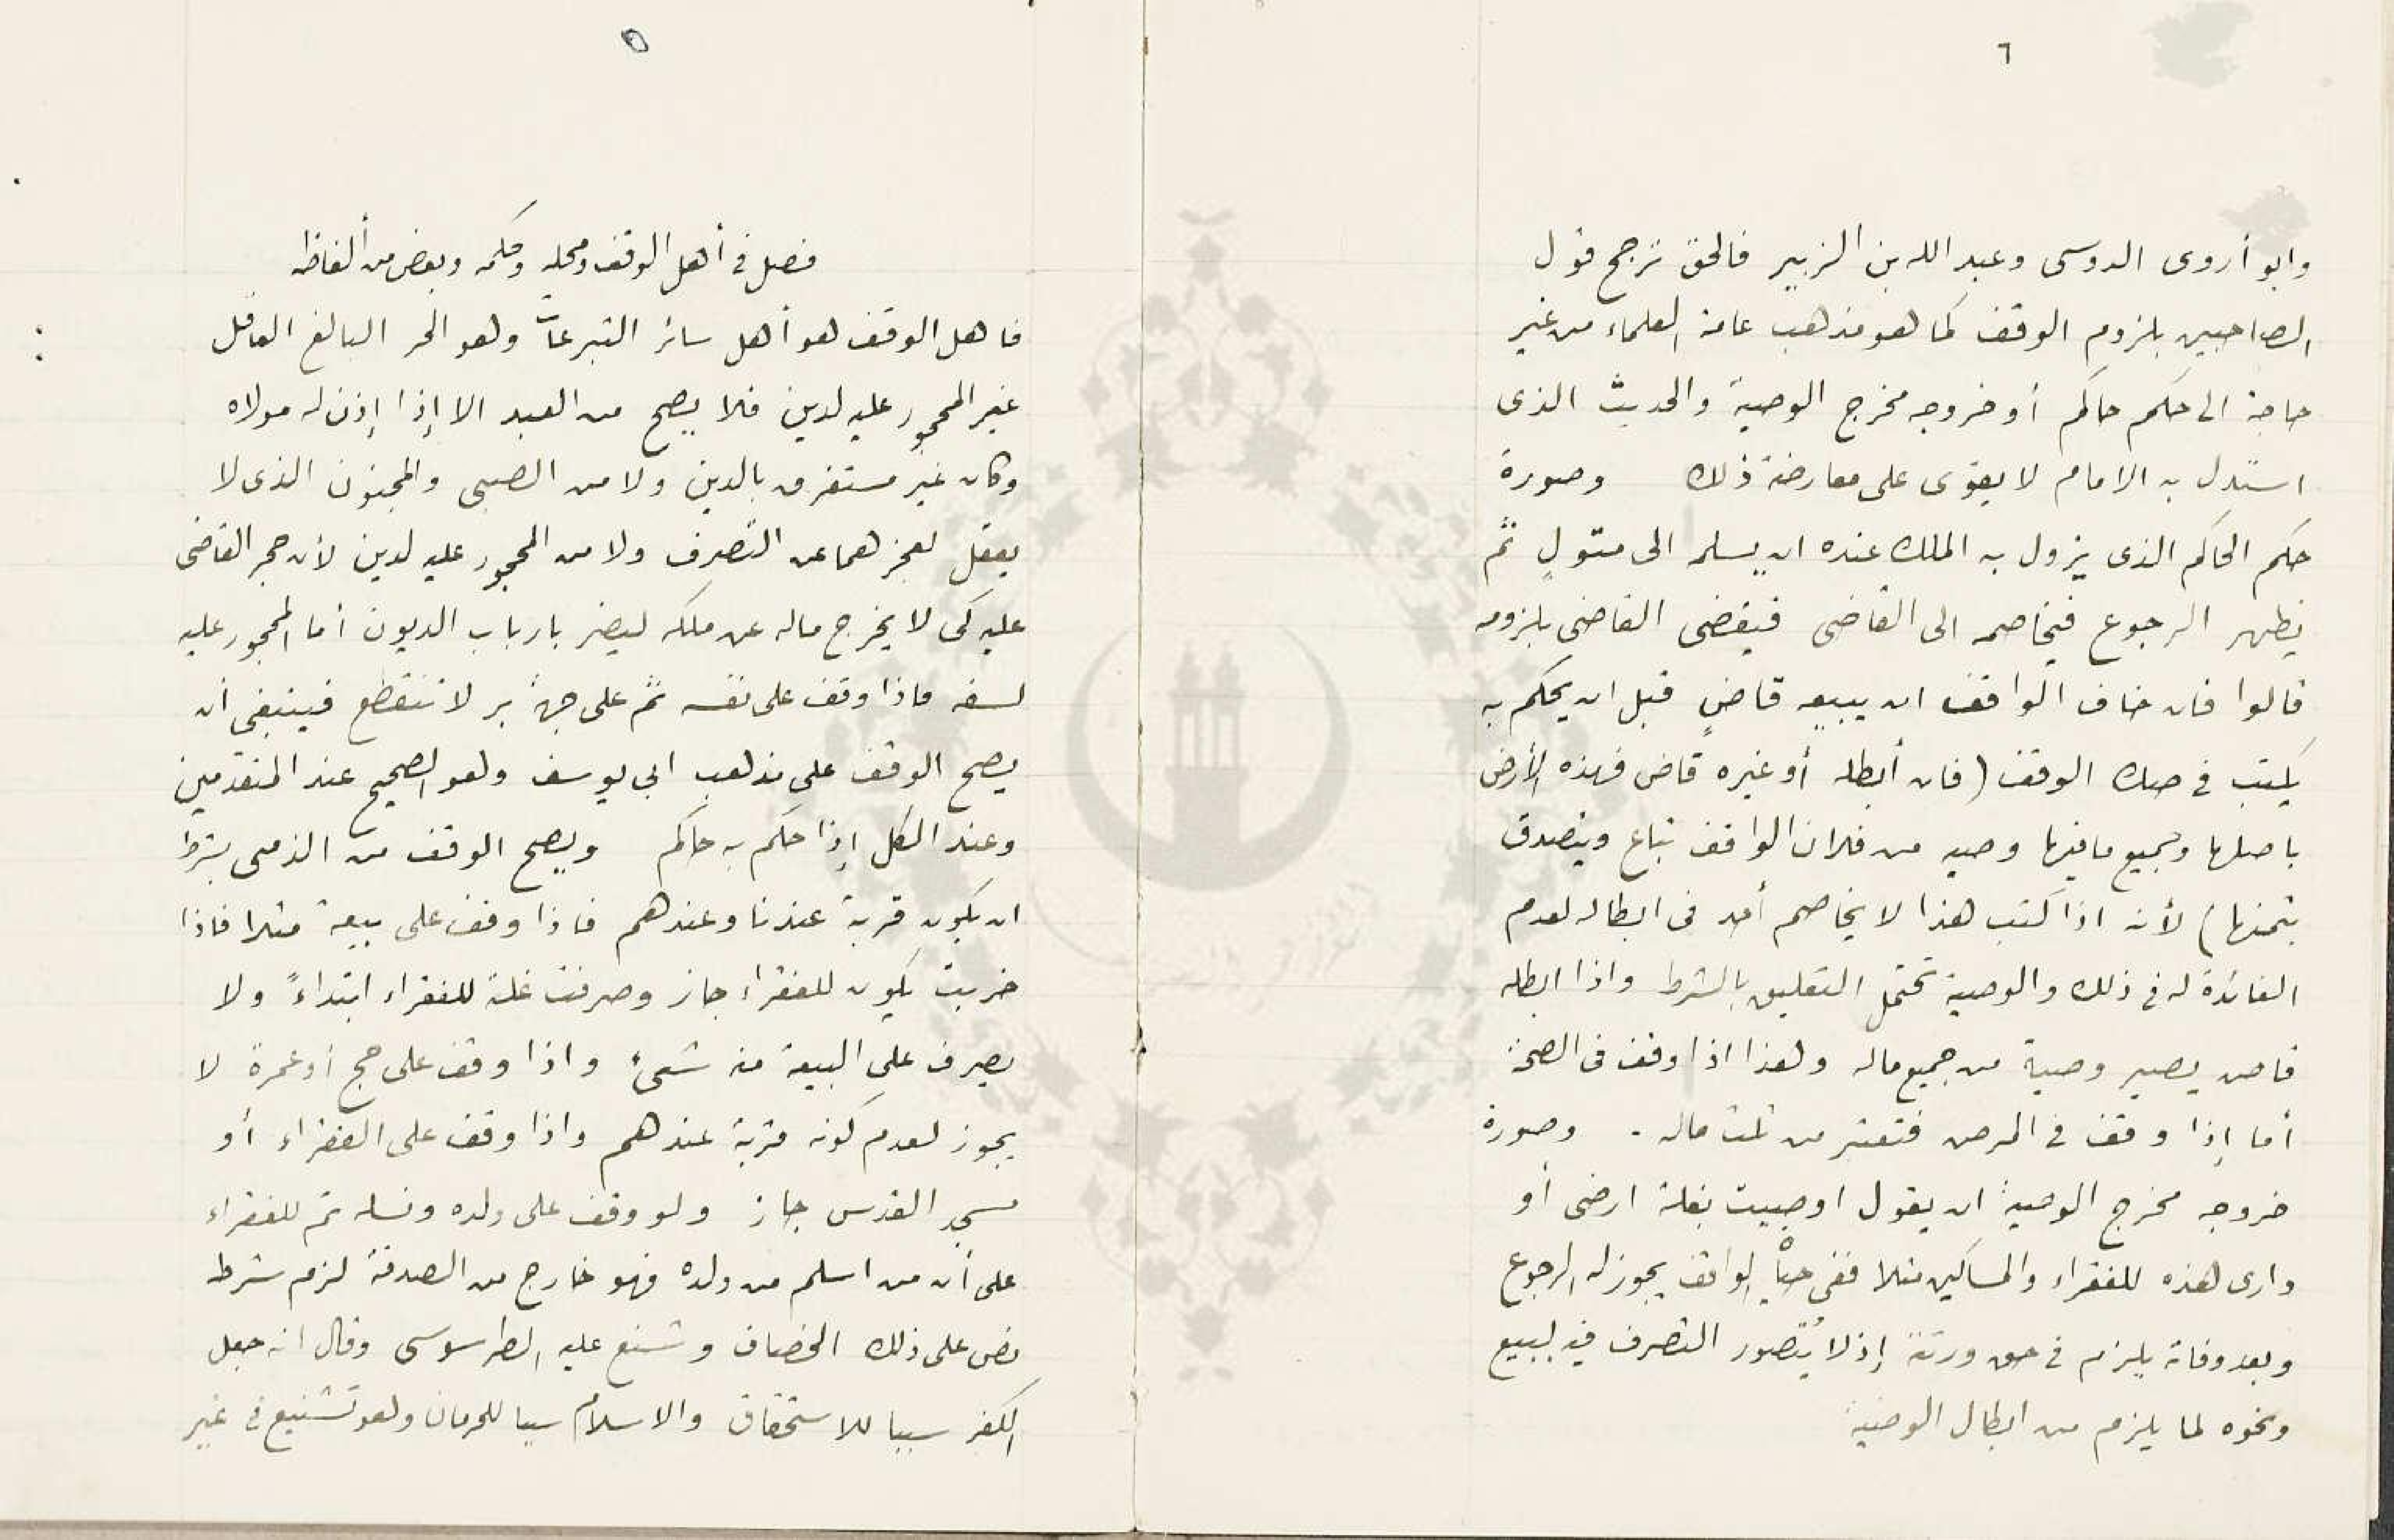 ٦
وابو أروى الدوسى وعبد الله بن الزبير فالحق ترجح قول
الصاحبين بلزوم الوقف كما هو مذهب عامة العلماء من غير
حاجة الى حكم حاكم أو خروجه مخرج الوصية والحديث الذى
استدل به الامام لا يقوى على معارضة ذلك وصورة
حكم الحاكم الذى يزول به الملك عنده ان يسلمه الى متولٍ ثم
يظهر الرجوع فيخاصمه الى القاضى فيقضى القاضى بلزومه
قالوا فان خاف الواقف ان يبيعه قاضٍ قبل ان يحكم به
يكتب فى صك الوقف (فان أبطله أو غيره قاض فهذه الأرض
باصلها وجميع مافيها وصيه من فلان الواقف تباع ويتصدق
بثمنها) لأنه اذا كتب هذا لا يخاصم أحد فى ابطاله لعدم
الفائدة له فى ذلك والوصية تحتمل التعليق بالشرط واذا ابطله
قاض يصير وصية من جميع ماله وهذا اذا وقف فى الصحة
أما إذا وقف فى المرض فتعتبر من ثلث ماله . وصورة
خروجه مخرج الوصية ان يقول اوصيت بغلة ارضى أو
دارى هذه للفقراء والمساكين مثلا ففى حياة الواقف يجوز له الرجوع
وبعد وفاته يلزم فى حق ورثته إذ لا يُتصور التصرف فيه لبيع
ونحوه لما يلزم من ابطال الوصية
٥
فصل فى أهل الوقف ومحله وحكمه وبعض من ألفاظه
فاهل الوقف هو أهل سائر التبرعات وهو الحر البالغ العاقل
غير المحجور عليه لدين فلا يصح من العبد الا إذا إذن له مولاه
وكان غير مستغرق بالدين ولا من الصبى والمجنون الذى لا
يعقل لعجزهما عن التصرف ولا من المحجور عليه لدين لأن حجر القاضى
عليه كى لا يخرج ماله عن ملكه ليضر بارباب الديون أما المحجور عليه
لسفه فاذا وقف على نفسه ثم على جهة بر لا تنقطع فينبغى ان
يصح الوقف على مذهب ابى يوسف وهو الصحيح عند المتقدمين
وعند الكل إذا حكم به حاكم ويصح الوقف من الذمى بشرط
ان يكون قربة عندنا وعندهم فاذا وقف على بيعة مثلا فاذا
خربت يكون للفقراء جاز وصرفت غلته للفقراء ابتداءً ولا
يصرف على البيعة منه شىء واذا وقف على حج أو عمرة لا
يجوز لعدم كونه قربة عندهم واذا وقف على الفقراء أو
مسجد القدس جاز ولو وقف على ولده ونسله ثم للفقراء
على أن من اسلم من ولده فهو خارج من الصدقة لزم شرطه
نص على ذلك الخصاف وشنع عليه الطرسوسى وقال انه جعل
الكفر سببا للاستحقاق والاسلام سببا للحرمان وهو تشنيع فى غير